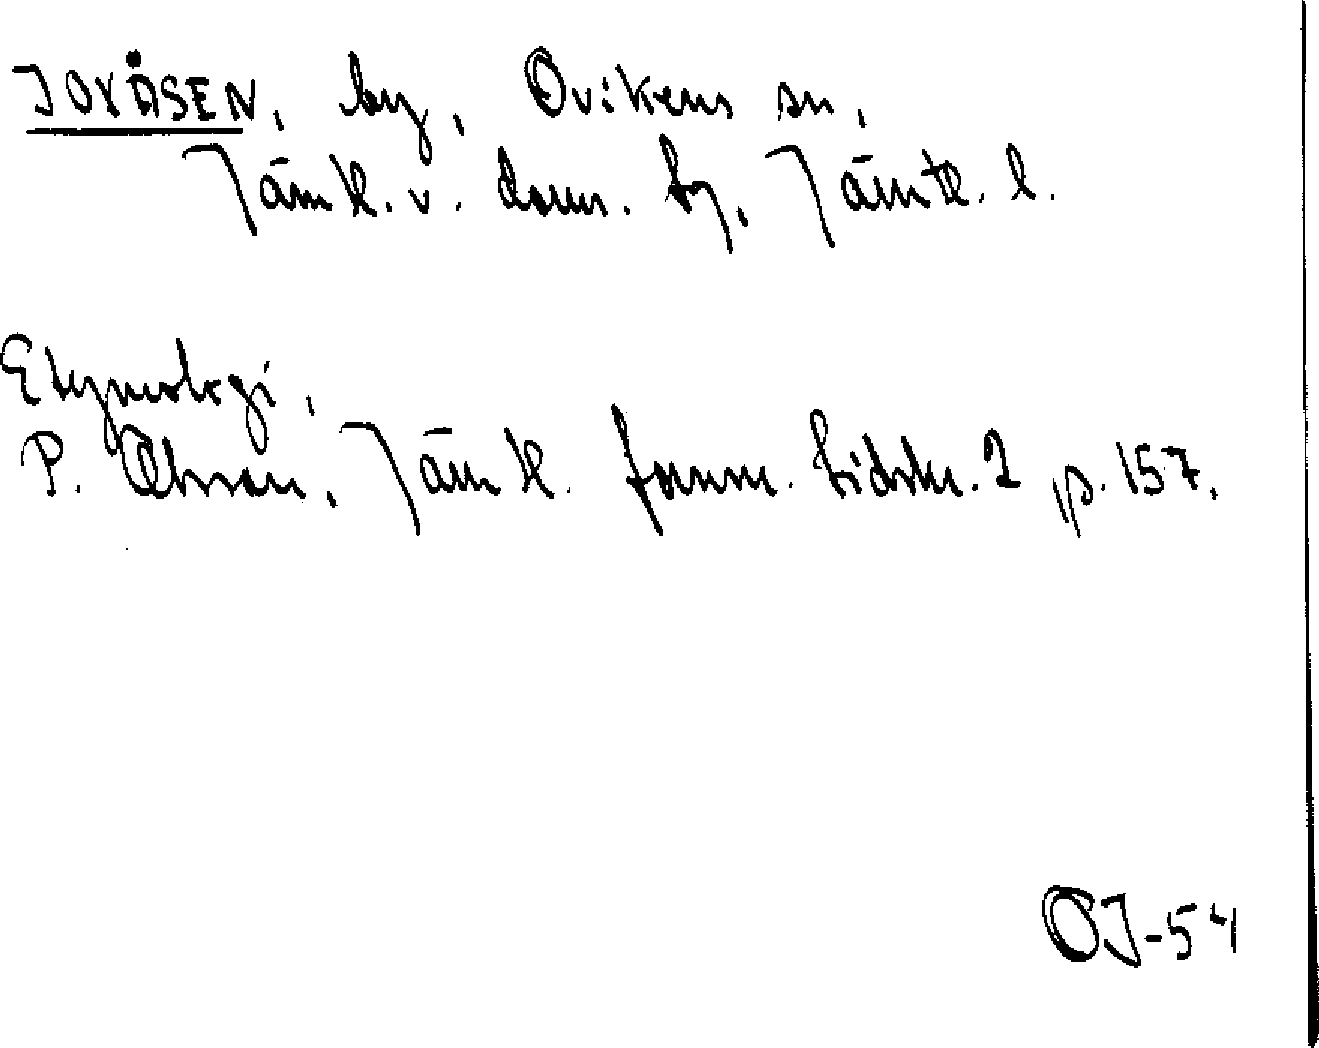 JOVÅSEN, by, Ovikens sn,
Jämtl. v. doms. by, Jämtl. l.
Etymologi,
P. Olsson, Jämtl. fornm. tidskr. 2, p. 157.
OJ-54